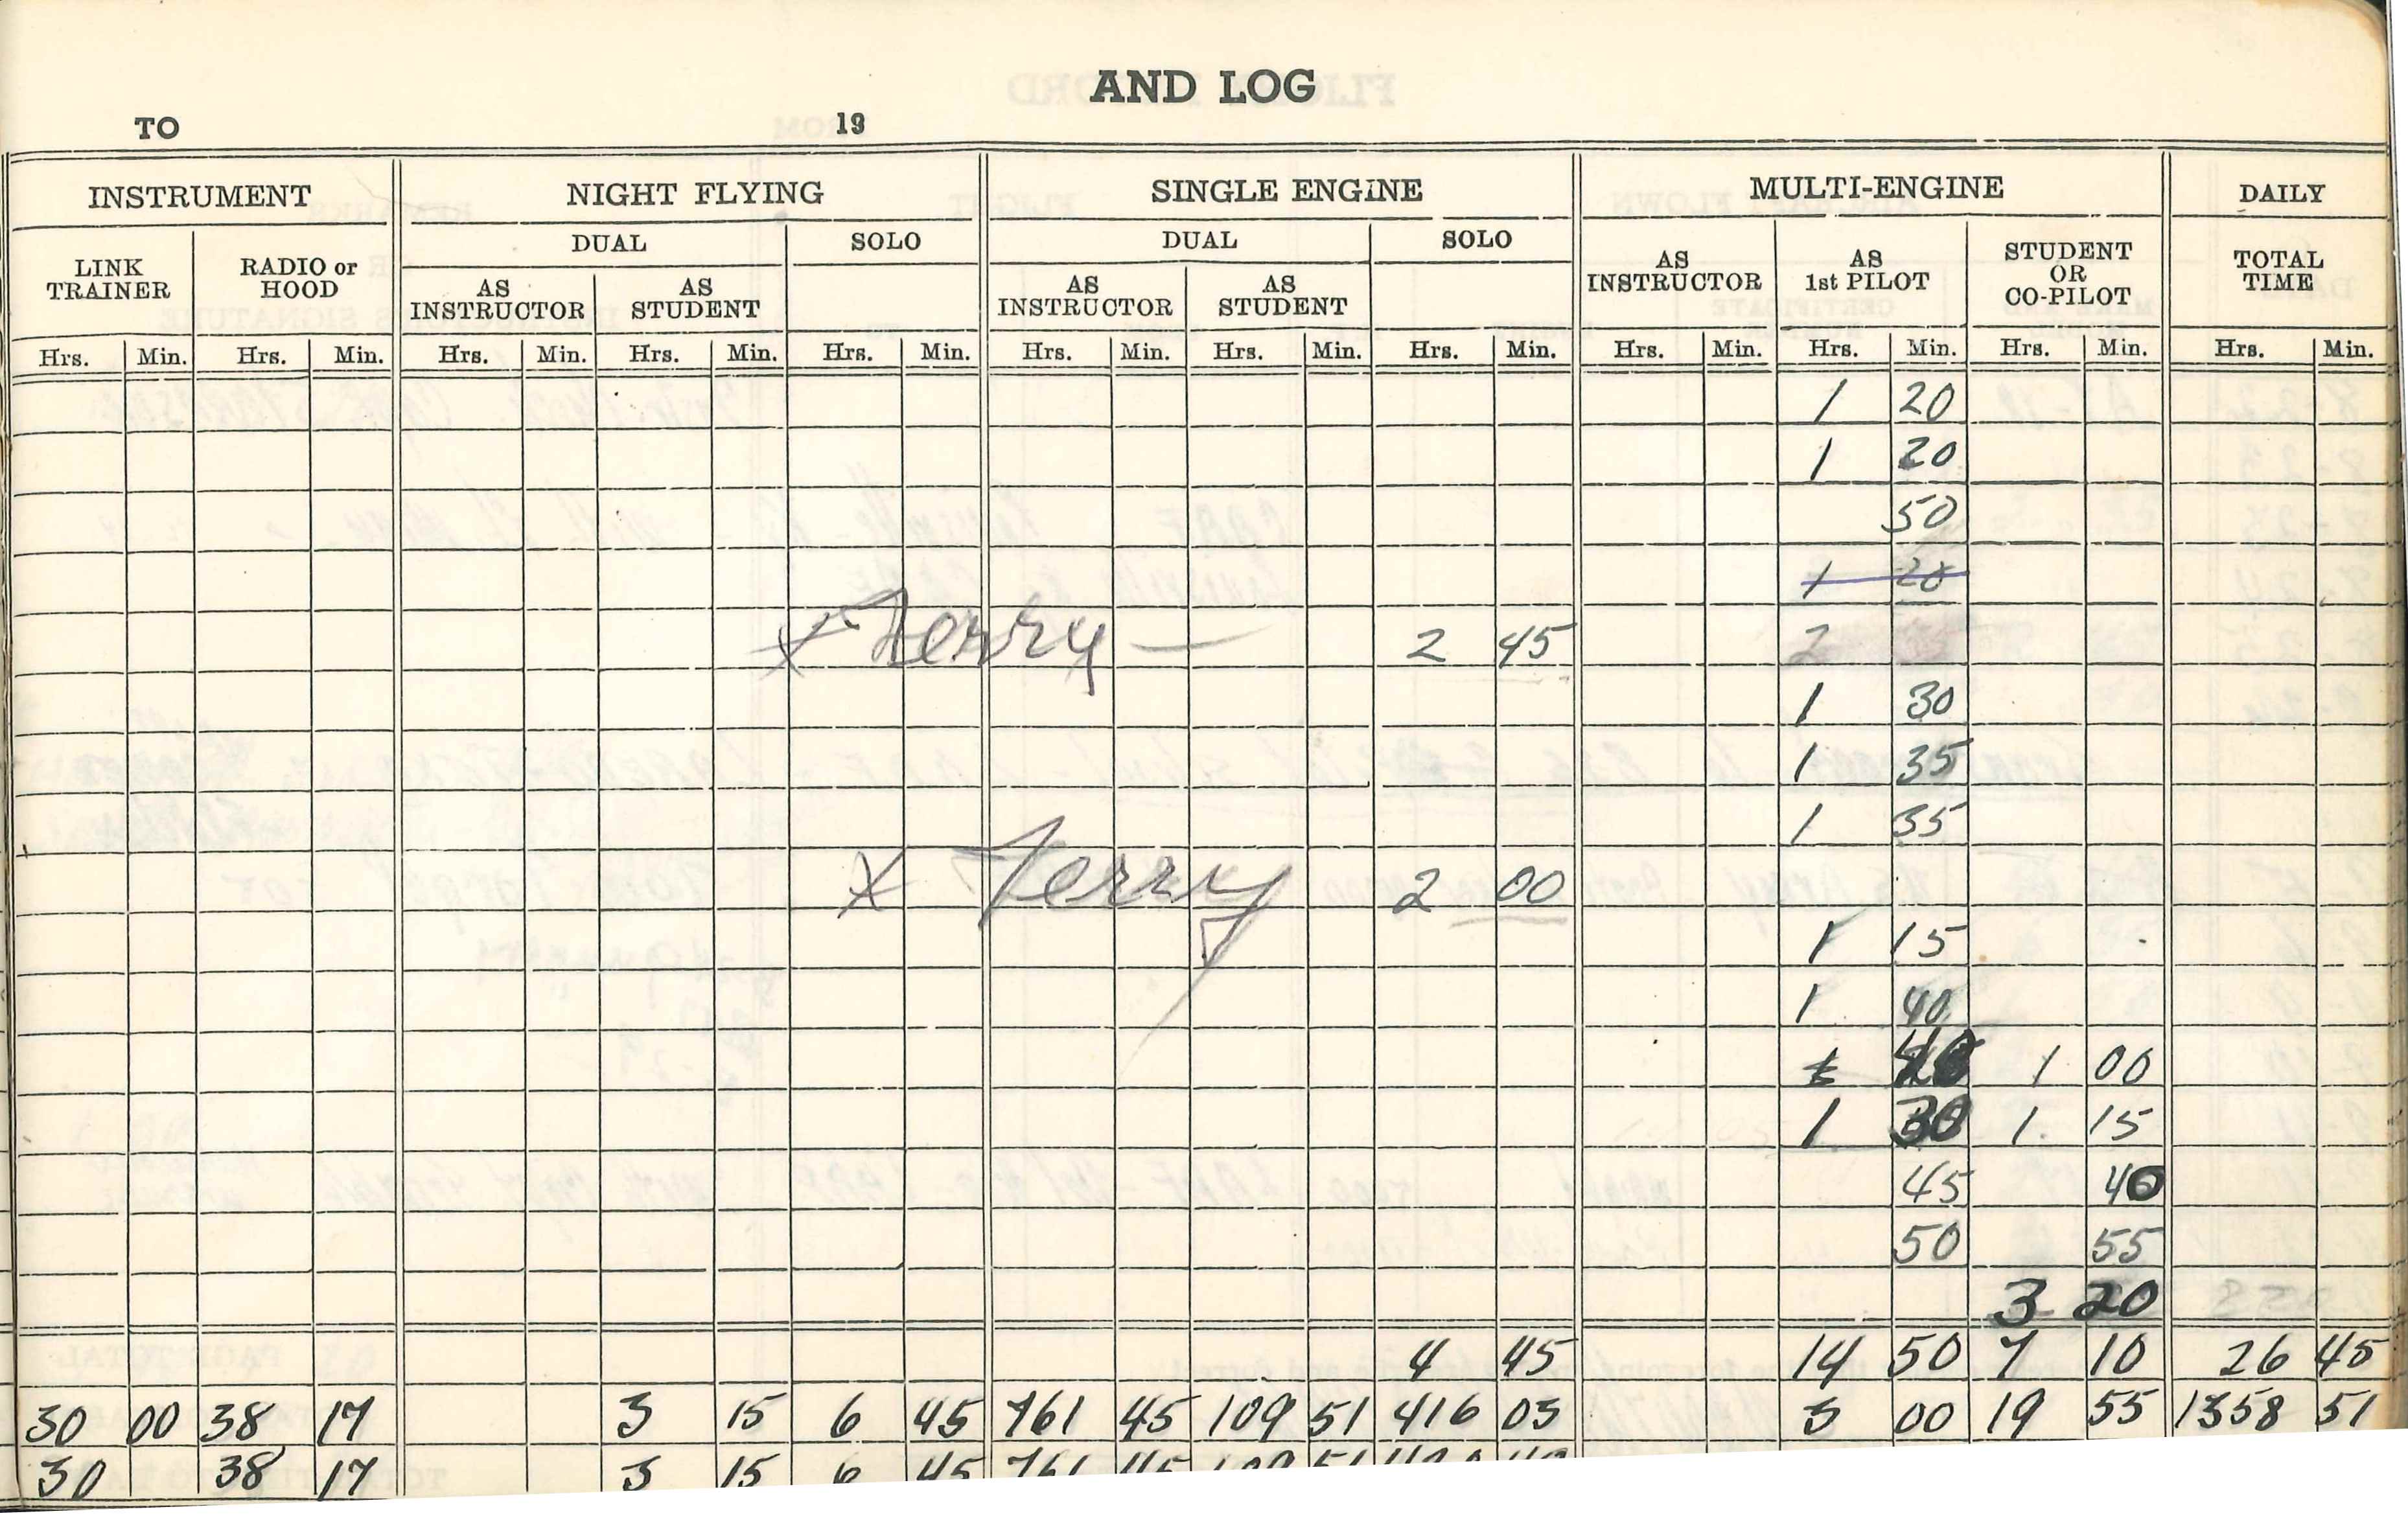 AND LOG
TO 19
INSTRUMENT NIGHT FLYING SINGLE ENGINE MULTI-ENGINE DAILY
DUAL SOLO DUAL SOLO
LINK TRAINER RADIO or HOOD AS INSTRUCTOR AS STUDENT AS INSTRUCTOR AS STUDENT AS INSTRUCTOR AS 1st PILOT STUDENT OR CO-PILOT TOTAL TIME
Hrs. Min. Hrs. Min. Hrs. Min. Hrs. Min. Hrs. Min. Hrs. Min. Hrs. Min. Hrs. Min. Hrs. Min. Hrs. Min. Hrs. Min. Hrs. Min.
1 20
1 20
50
1 20
x Ferry — 2 45 2
1 30
1 35
1 35
x Ferry 2 00
1 15
1 40
1 00
1 30 1. 15
45 40
50 55
3 20
4 45 14 50 7 10 26 45
30 00 38 17 3 15 6 45 761 45 109 51 416 03 3 00 19 55 1358 51
30 38 17 3 15 6 45 761 45 109 51